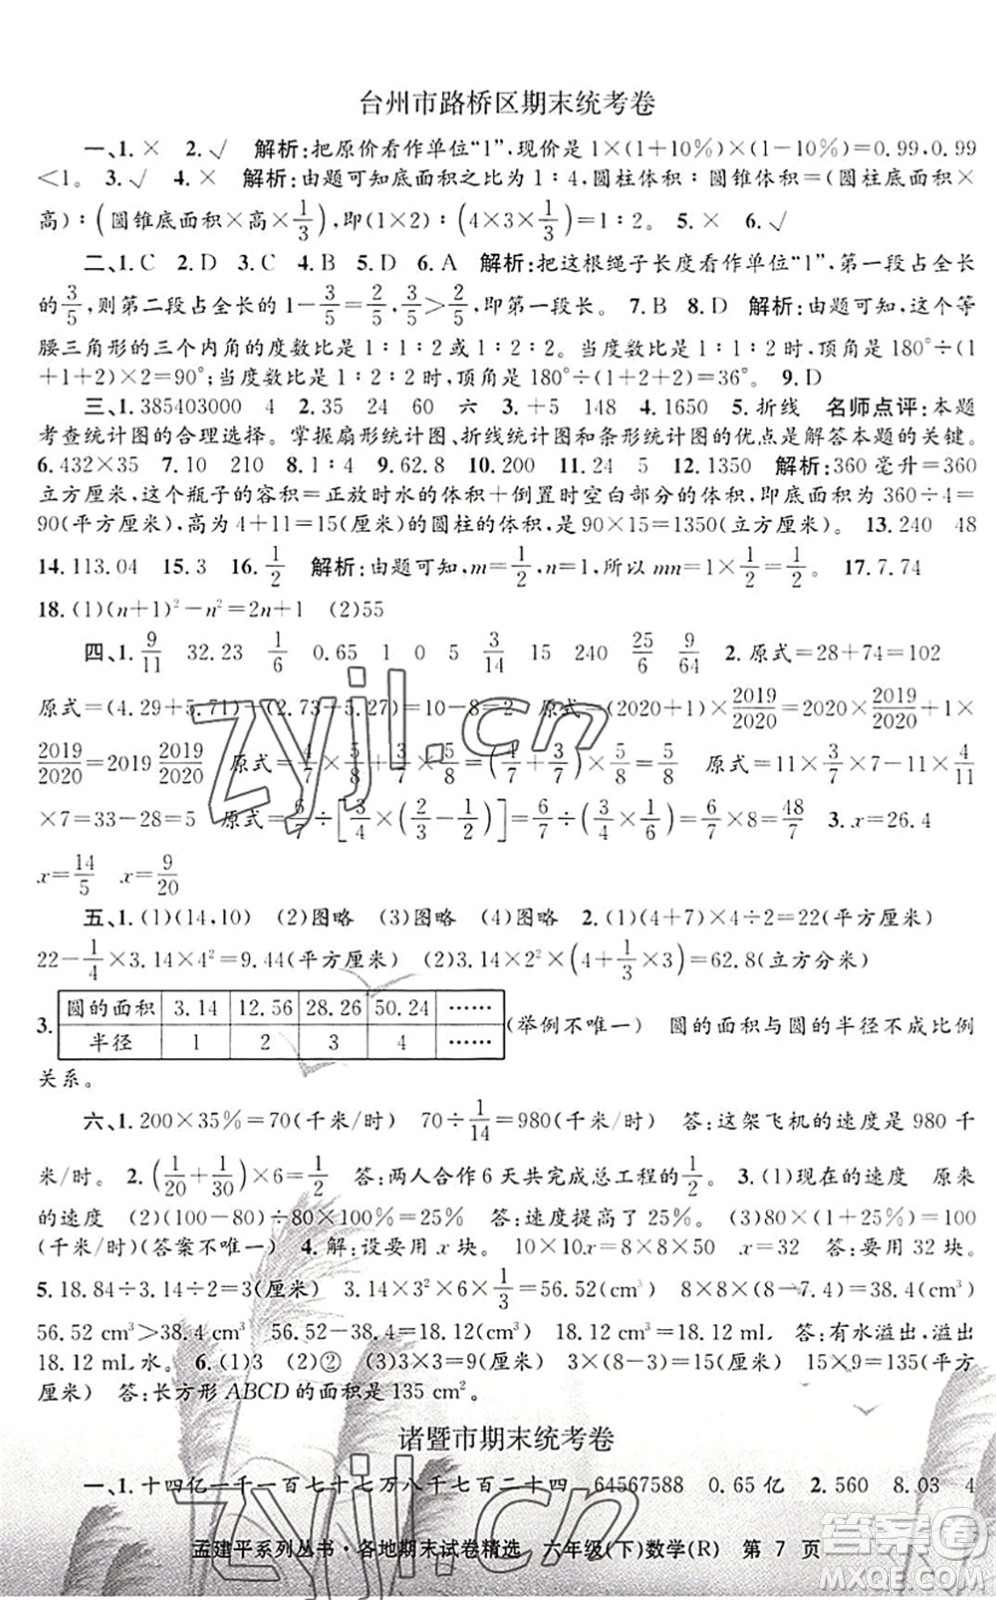 台州市路桥区期末统考卷
一、1.× 2.√ 解析:把原价看作单位“1”,现价是 1×(1+10%)×(1-10%)=0.99,0.99
<1。 3.√ 4.× 解析:由题可知底面积之比为 1∶4,圆柱体积∶圆锥体积=(圆柱底面积×
高)∶(圆锥底面积×高×1/3),即(1×2)∶(4×3×1/3)=1∶2。 5.× 6.√
二、1.C 2.D 3.C 4.B 5.D 6.A 解析:把这根绳子长度看作单位“1”,第一段占全长
的3/5,则第二段占全长的 1-3/5=2/5,3/5>2/5,所以,第一段长。 7.B 8.D 解析:由题可知,这个等
腰三角形的三个内角的度数比是 1∶1∶2 或 1∶2∶2。当度数比是 1∶1∶2 时,顶角是 180°÷(1
+1+2)×2=90°;当度数比是 1∶2∶2 时,顶角是 180°÷(1+2+2)=36°。 9.D
三、1.385403000 4 2.35 24 60 六 3.+5 148 4.1650 5.折线 名师点评:本题
考查统计图的合理选择。掌握扇形统计图、折线统计图和条形统计图的优点是解答本题的关键。
6.432×35 7.10 210 8.1∶4 9.62.8 10.200 11.24 5 12.1350 解析:360 毫升=360
立方厘米,这个瓶子的容积=正放时水的体积+倒置时空白部分的体积,即底面积为 360÷4=
90(平方厘米),高为 4+11=15(厘米)的圆柱的体积,是 90×15=1350(立方厘米)。 13.240 48
14.113.04 15.3 16.1/2 解析:由题可知,m=1/2,n=1,所以 mn=1×1/2=1/2。 17.7.74
18.(1)(n+1)²-n²=2n+1 (2)55
四、1.9/11 32.23 1/6 0.65 1 0 5 3/14 15 240 25/6 9/64 2.原式=28+74=102
原式=(4.29+5.71)-(2.73+5.27)=10-8=2 原式=(2020+1)×2019/2020=2020×2019/2020+1×
2019/2020=2019 2019/2020 原式=4/7×5/8+3/7×5/8=(4/7+3/7)×5/8=5/8 原式=11×3/7×7-11×4/11
×7=33-28=5 原式=6/7÷[3/4×(2/3-1/2)]=6/7÷(3/4×1/6)=6/7×8=48/7 3.x=26.4
x=14/5 x=9/20
五、1.(1)(14,10) (2)图略 (3)图略 (4)图略 2.(1)(4+7)×4÷2=22(平方厘米)
22-1/4×3.14×4²=9.44(平方厘米) (2)3.14×2²×(4+1/3×3)=62.8(立方分米)
3. 圆的面积 3.14 12.56 28.26 50.24 …… (举例不唯一) 圆的面积与圆的半径不成比例
半径 1 2 3 4 ……
关系。
六、1.200×35%=70(千米/时) 70÷1/14=980(千米/时) 答:这架飞机的速度是 980 千
米/时。 2.(1/20+1/30)×6=1/2 答:两人合作 6 天共完成总工程的1/2。 3.(1)现在的速度 原来
的速度 (2)(100-80)÷80×100%=25% 答:速度提高了 25%。 (3)80×(1+25%)=100
(千米/时)(答案不唯一) 4.解:设要用 x 块。 10×10x=8×8×50 x=32 答:要用 32 块。
5.18.84÷3.14÷2=3(厘米) 3.14×3²×6×1/3=56.52(cm³) 8×8×(8-7.4)=38.4(cm³)
56.52 cm³>38.4 cm³ 56.52-38.4=18.12(cm³) 18.12 cm³=18.12 mL 答:有水溢出,溢出
18.12 mL 水。 6.(1)3 (2)② (3)3×3=9(厘米) 3×(8-3)=15(厘米) 15×9=135(平方
厘米) 答:长方形 ABCD 的面积是 135 cm²。
诸暨市期末统考卷
一、1.十四亿一千一百七十七万八千七百二十四 64567588 0.65 亿 2.560 8.03 4
孟建平系列丛书·各地期末试卷精选 六年级(下)数学(R) 第 7 页
zyjl.cn
zyjl.cn
答案圈
MXQE.COM